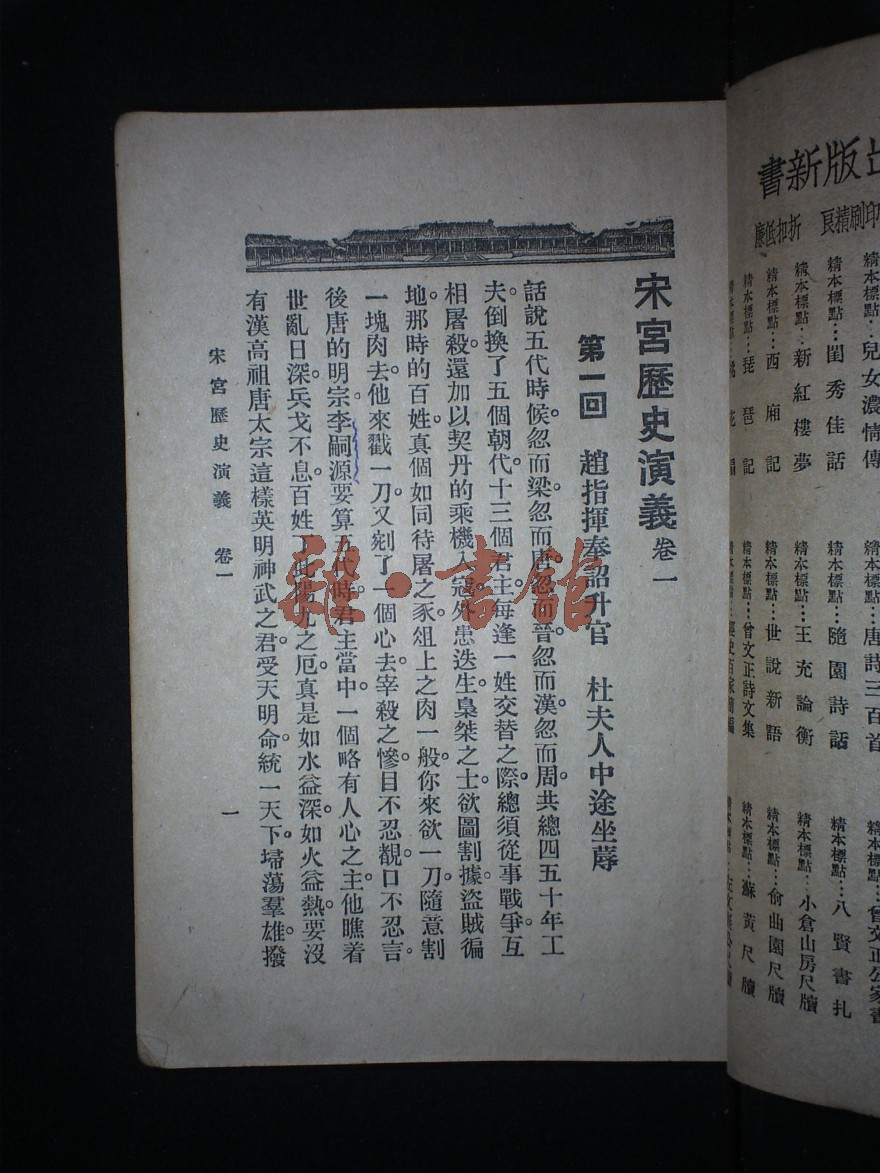 宋宮歷史演義 卷一
第一回 趙指揮奉詔升官 杜夫人中途坐蓐
話說五代時候。忽而梁。忽而唐。忽而晉。忽而漢。忽而周。共總四五十年工
夫。倒換了五個朝代。十三個君主。每逢一姓交替之際。總須從事戰爭。互
相屠殺。還加以契丹的乘機入寇。外患迭生。梟桀之士。欲圖割據。盜賊徧
地。那時的百姓。真個如同待屠之豕。俎上之肉一般。你來欲一刀。隨意割
一塊肉去。他來戳一刀。又剜了一個心去。宰殺之慘。目不忍覩。口不忍言。
後唐的明宗李嗣源。要算五代時。君主當中。一個略有人心之主。他瞧着
世亂日深。兵戈不息。百姓丁此陽九之厄。真是如水益深。如火益熱。要沒
有漢高祖唐太宗這樣英明神武之君。受天明命。統一天下。埽蕩羣雄。撥
宋宮歷史演義 卷一
一
雅·書館
出版新書
印刷精良 折扣低廉
精本標點…兒女濃情傳
精本標點…唐詩三百首
精本標點…曾文正公家書
精本標點…閨秀佳話
精本標點…隨園詩話
精本標點…八賢書扎
精本標點…新紅樓夢
精本標點…王充論衡
精本標點…小倉山房尺牘
精本標點…西廂記
精本標點…世說新語
精本標點…俞曲園尺牘
精本標點…琵琶記
精本標點…曾文正詩文集
精本標點…蘇黃尺牘
花